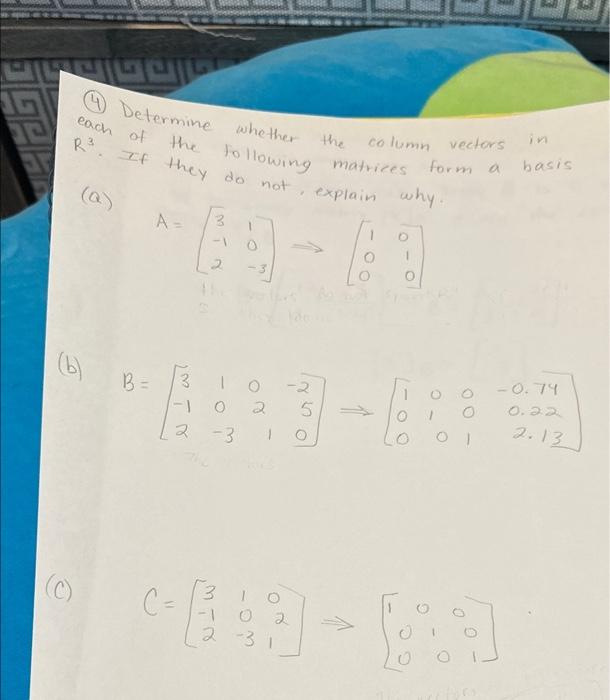 ④ Determine whether the column vectors in
each of the following matrices form a basis
R³. If they do not, explain why.
(a)
A = [3 1 ⇒ [1 0
-1 0 0 1
2 -3] 0 0]
(b)
B = [3 1 0 -2 ⇒ [1 0 0 -0.74
-1 0 2 5 0 1 0 0.22
2 -3 1 0] 0 0 1 2.13]
(C)
C = [3 1 0 ⇒ [1 0 0
-1 0 2 0 1 0
2 -3 1] 0 0 1]